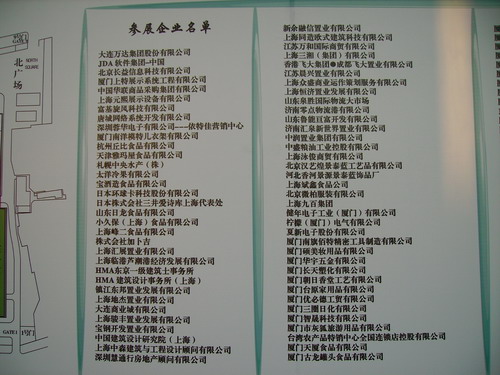 NORTH SQUARE
北广场
GATE1
参展企业名单
大连万达集团股份有限公司
JDA 软件集团-中国
北京长益信息科技有限公司
厦门上特展示系统工程有限公司
中国华联商品采购集团有限公司
上海元熙展示设备有限公司
富基旋风科技有限公司
唐城网络系统开发有限公司
厦门南洋模特儿衣架有限公司
杭州丘比食品有限公司
天津雅玛屋食品有限公司
札幌中央水产（株）
太洋冷果有限公司
宝酒造食品有限公司
日本环球卡科技股份有限公司
日本株式会社三井爱诗库上海代表处
山东日龙食品有限公司
小久保（上海）食品有限公司
上海峰二食品有限公司
株式会社加卜吉
上海汇展置业有限公司
上海临港芦潮港经济发展有限公司
HMA东京一级建筑士事务所
HMA 建筑设计事务所（上海）
镇江东邦置业发展有限公司
上海地杰置业有限公司
大连商业城有限公司
上海骏丰置业发展有限公司
宝钢开发置业有限公司
中国建筑设计研究院（上海）
上海中森建筑与工程设计顾问有限公司
深圳慧通行房地产顾问有限公司
新余融信置业有限公司
上海同造欧式建筑科技有限公司
江苏万和国际商贸有限公司
上海三湘（集团）有限公司
香港飞大集团●成都飞大置业有限公司
江苏晨兴置业有限公司
上海众盛商业运作策划服务有限公司
上海恒济置业发展有限公司
山东泉胜国际物流大市场
济南零点物流港有限公司
山东鲁能亘富开发有限公司
济南汇泉新世界置业有限公司
中润置业集团有限公司
中盛粮油工业控股有限公司
上海泳俊商贸有限公司
北京汉艺煌景泰蓝工艺品有限公司
河北香河景源景泰蓝饰品厂
上海斌鑫食品公司
北京微柏服装有限公司
上海九百集团
健年电子工业（厦门）有限公司
柠檬（厦门）电气有限公司
夏新电子股份有限公司
厦门南旗佰特精密工具制造有限公司
厦门硕美妆用品有限公司
厦门华宇五金有限公司
厦门长天塑化有限公司
厦门朝日香堂工艺有限公司
厦门台原家用品有限公司
厦门优必德工贸有限公司
厦门三圈日化有限公司
厦门智晟科技有限公司
厦门市灰狐旅游用品有限公司
台湾农产品特销中心全国连锁店控股有限公司
厦门天厦食品有限公司
厦门古龙罐头食品有限公司